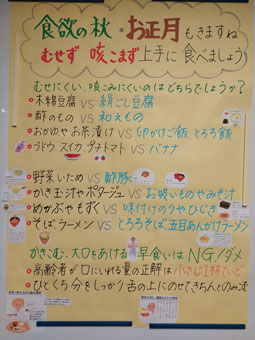 食欲の秋・お正月もきますね
むせず 咳こまず 上手に食べましょう
むせにくい、咳こみにくいのはどちらでしょうか？
木綿豆腐 VS 絹ごし豆腐
酢のもの VS 和えもの
おかゆやお茶漬け VS 卵かけご飯 とろろ飯
ブドウ スイカ プチトマト VS バナナ
野菜いため VS 酢豚
かき玉汁やポタージュ VS お吸いものやみそ汁
めかぶやもずく VS 味付けのりやひじき
そば ラーメン VS とろろそば、五目あんかけラーメン
かきこむ、大口をあける 早食いは NG！ダメ
高齢者が口にいれる量の正解は小さじ1杯ていど
ひとくち分をしっかり舌の上にのせてきちんとのみ込む